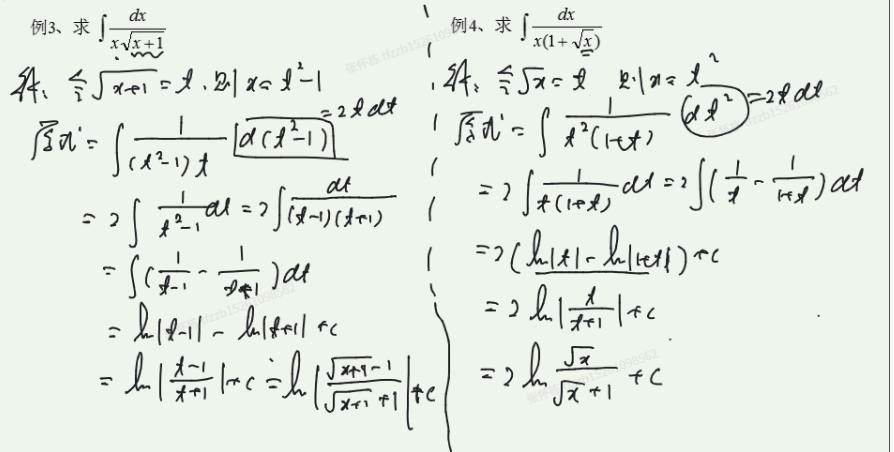 例3、求 ∫ dx / (x√(x+1))
解、令√(x+1) = t . 则 x = t² - 1
原式 = ∫ 1/((t²-1)t) d(t²-1) = 2t dt
= 2∫ 1/(t²-1) dt = 2∫ dt/((t-1)(t+1))
= ∫(1/(t-1) - 1/(t+1)) dt
= ln|t-1| - ln|t+1| + c
= ln|(t-1)/(t+1)| + c = ln|(√(x+1) - 1)/(√(x+1) + 1)| + c
例4、求 ∫ dx / (x(1+√x))
解、令√x = t 则 x = t²
原式 = ∫ 1/(t²(1+t)) dt² = 2t dt
= 2∫ 1/(t(1+t)) dt = 2∫(1/t - 1/(1+t)) dt
= 2(ln|t| - ln|1+t|) + c
= 2 ln|t/(t+1)| + c
= 2 ln √x/(√x + 1) + c